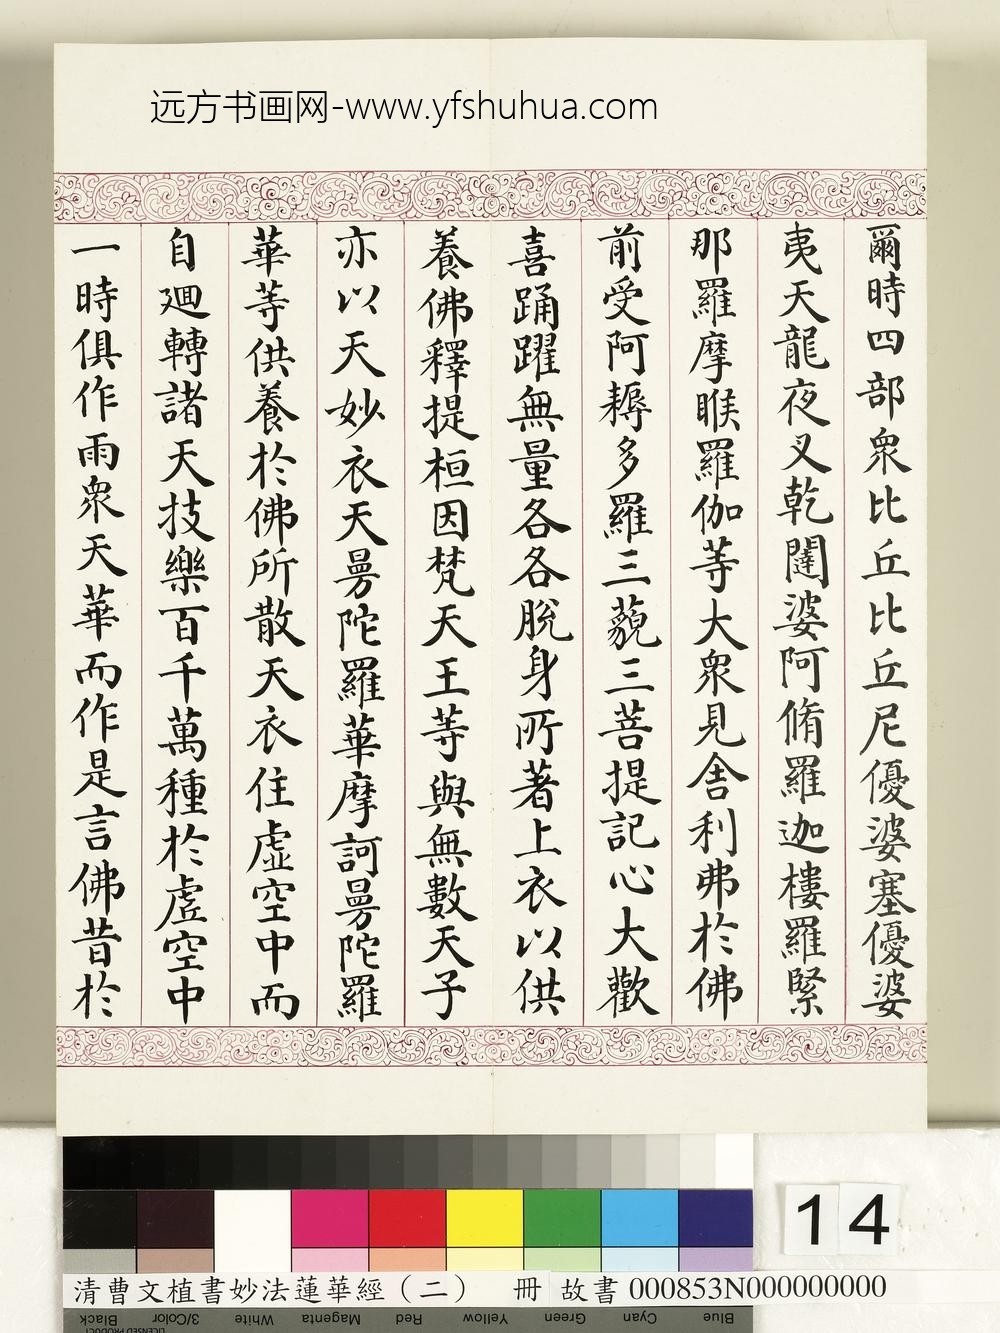 远方书画网-www.yfshuhua.com
爾時四部衆比丘比丘尼優婆塞優婆
夷天龍夜叉乾闥婆阿脩羅迦樓羅緊
那羅摩睺羅伽等大衆見舍利弗於佛
前受阿耨多羅三藐三菩提記心大歡
喜踊躍無量各各脫身所著上衣以供
養佛釋提桓因梵天王等與無數天子
亦以天妙衣天曼陀羅華摩訶曼陀羅
華等供養於佛所散天衣住虛空中而
自迴轉諸天技樂百千萬種於虛空中
一時俱作雨衆天華而作是言佛昔於
14
清曹文植書妙法蓮華經（二） 冊 故書 000853N000000000
Black 3/Color White Magenta Red Yellow Green Cyan Blue
LICENSED PRODUCT